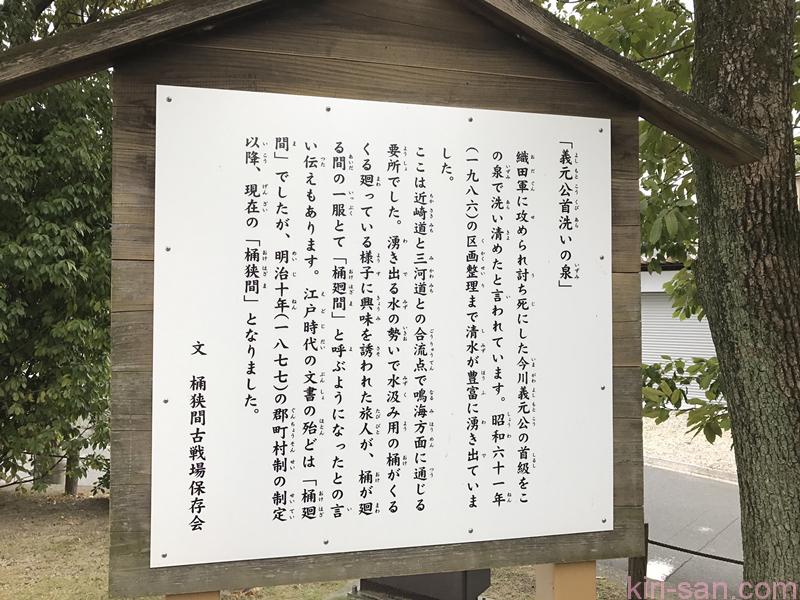 「義元公首洗いの泉」
織田軍に攻められ討ち死にした今川義元公の首級をこ
の泉で洗い清めたと言われています。昭和六十一年
(一九八六)の区画整理まで清水が豊富に湧き出ていま
した。
ここは近崎道と三河道との合流点で鳴海方面に通じる
要所でした。湧き出る水の勢いで水汲み用の桶がくる
くる廻っている様子に興味を誘われた旅人が、桶が廻
る間の一服とて「桶廻間」と呼ぶようになったとの言
い伝えもあります。江戸時代の文書の殆どは「桶廻
間」でしたが、明治十年(一八七七)の郡町村制の制定
以降、現在の「桶狭間」となりました。
文 桶狭間古戦場保存会
kiri-san.com